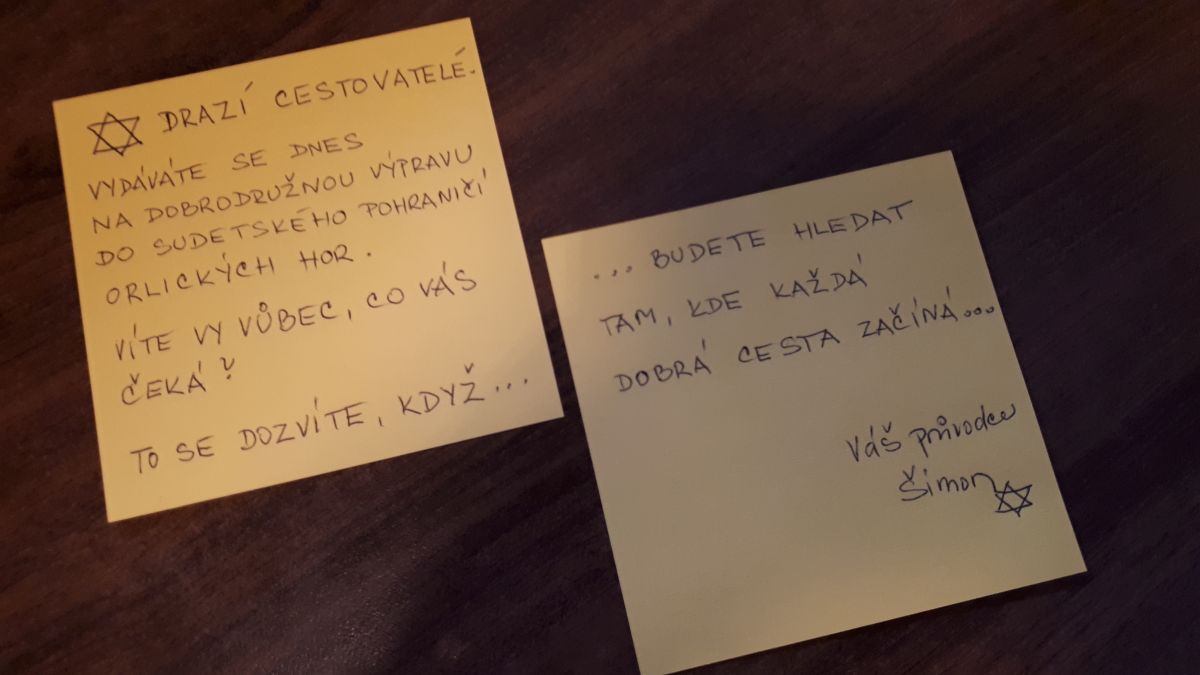 DRAZÍ CESTOVATELÉ.
VYDÁVÁTE SE DNES
NA DOBRODRUŽNOU VÝPRAVU
DO SUDETSKÉHO POHRANIČÍ
ORLICKÝCH HOR.
VÍTE VY VŮBEC, CO VÁS
ČEKÁ?
TO SE DOZVÍTE, KDYŽ...
... BUDETE HLEDAT
TAM, KDE KAŽDÁ
DOBRÁ CESTA ZAČÍNÁ...
Váš průvodce
Šimon